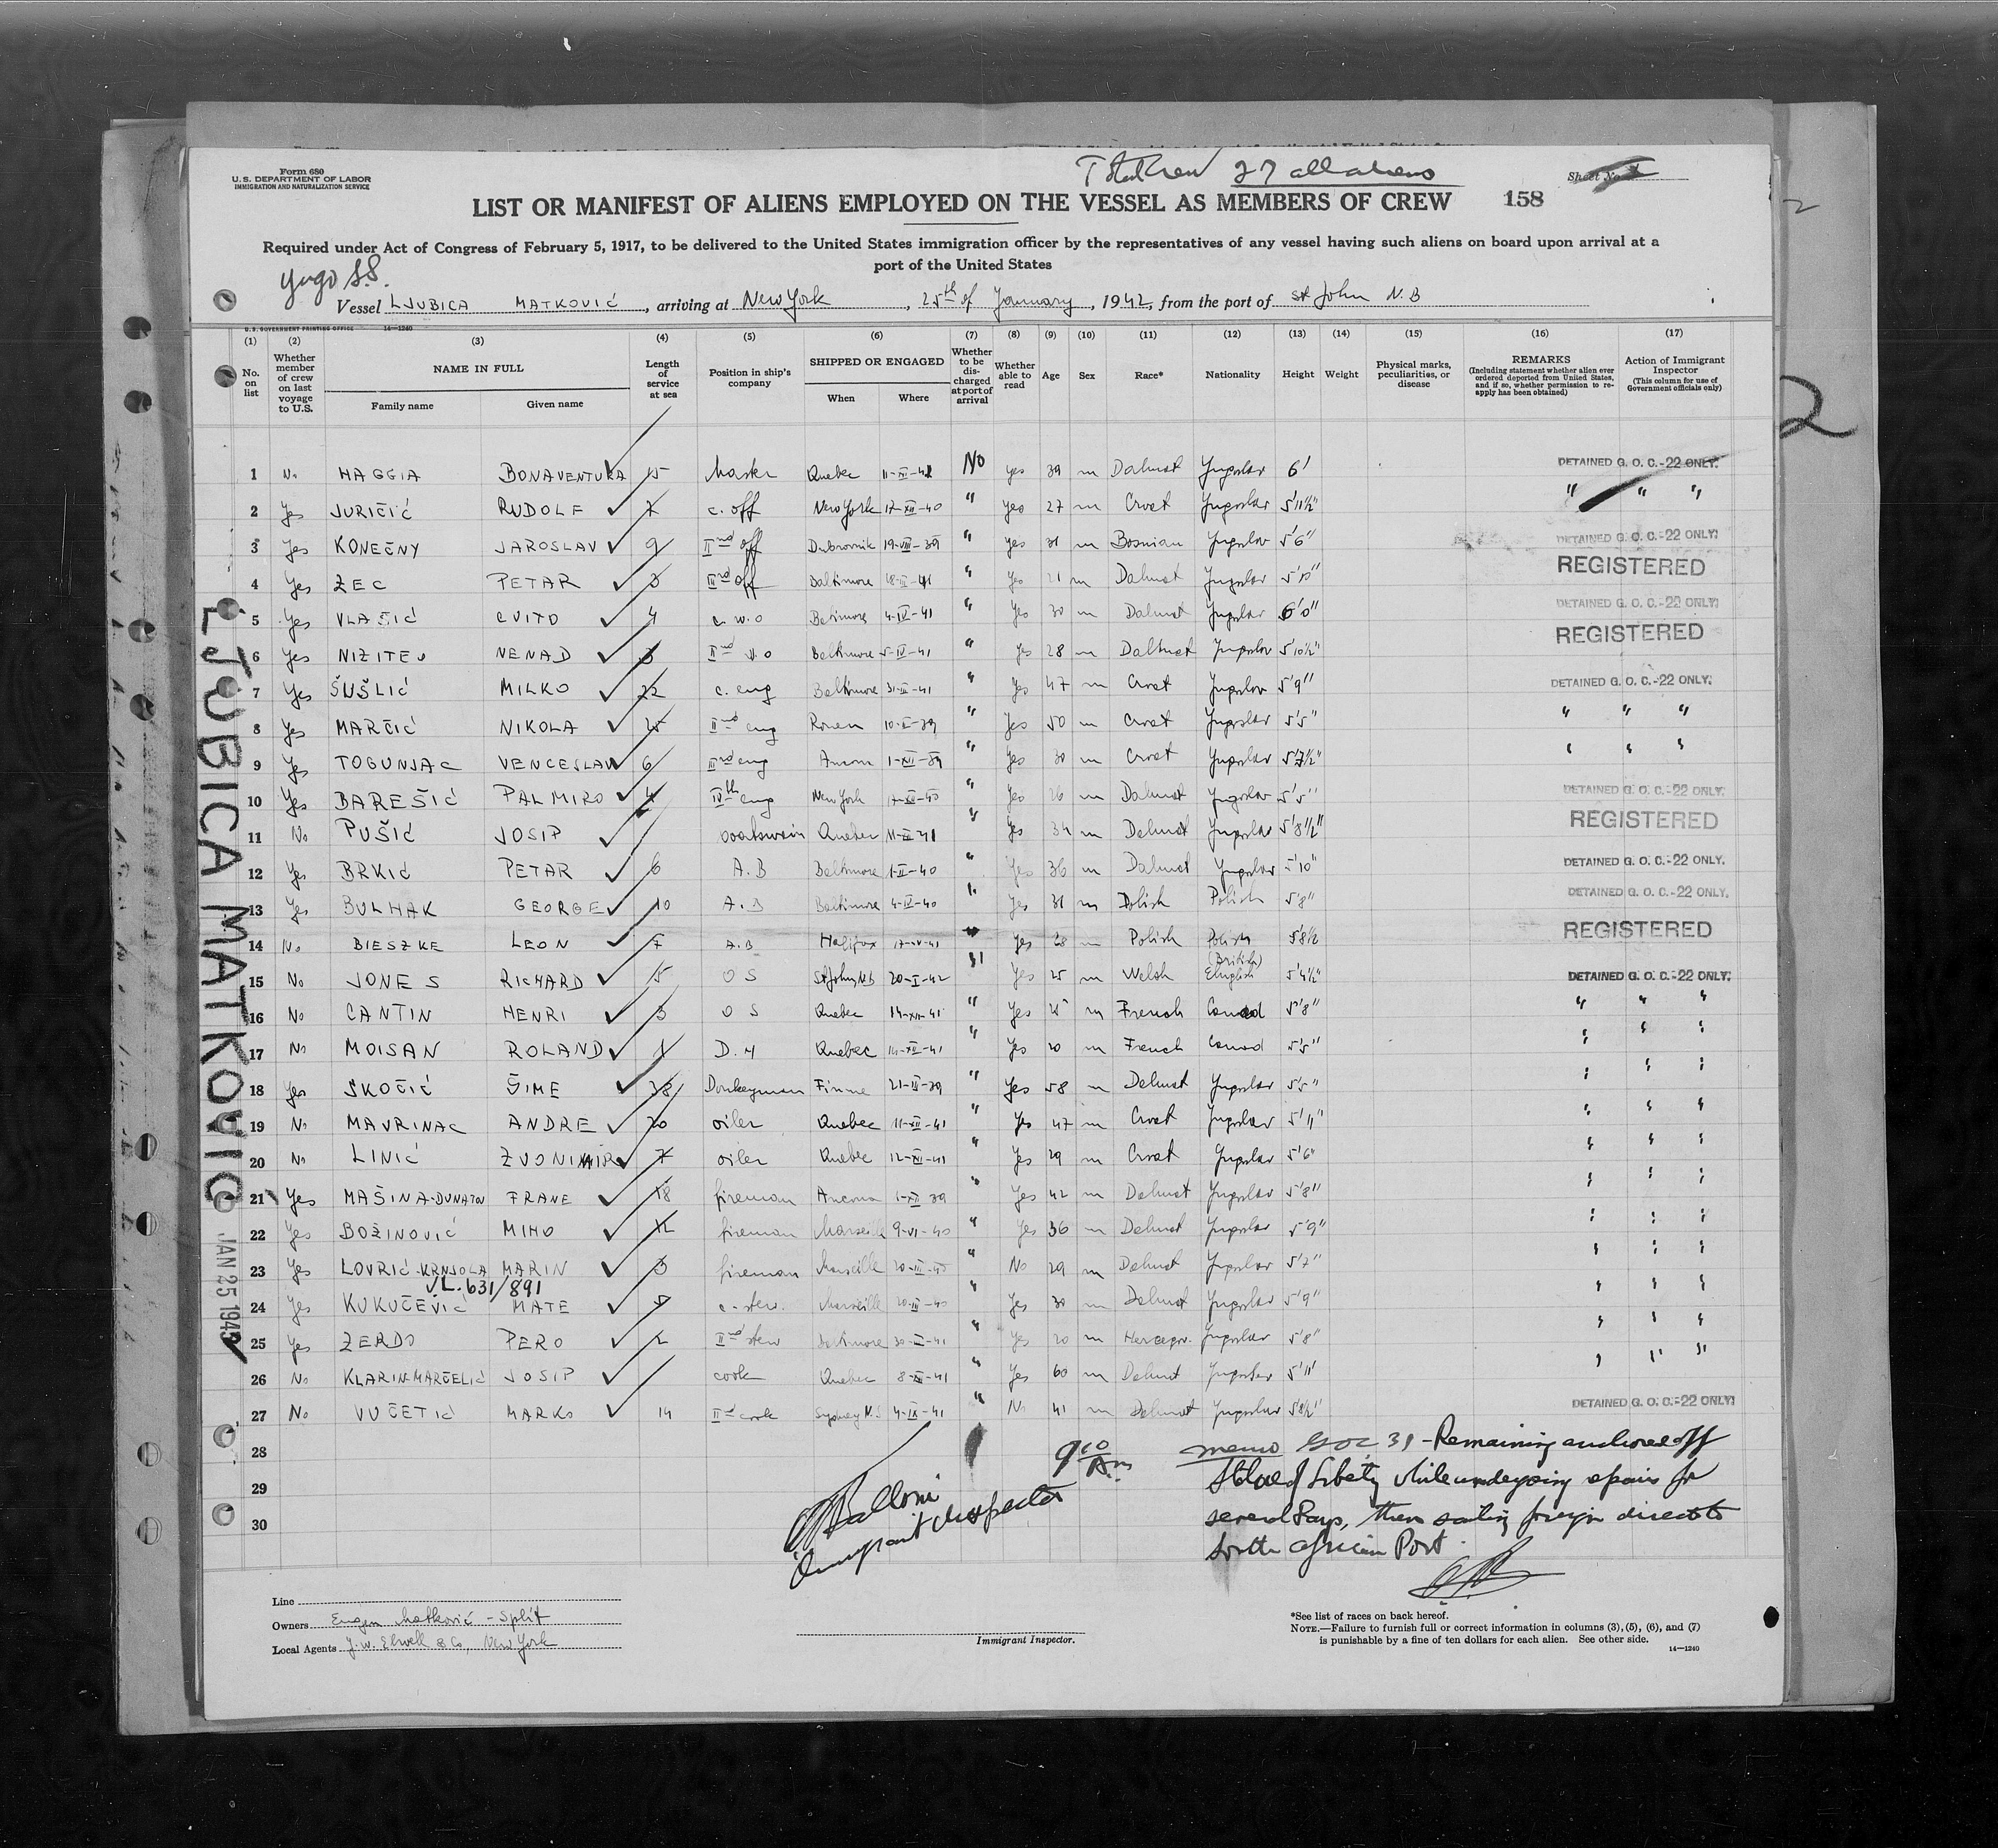 Form 680
U. S. DEPARTMENT OF LABOR
IMMIGRATION AND NATURALIZATION SERVICE
Total Crew 27 all aliens
Sheet No.
LIST OR MANIFEST OF ALIENS EMPLOYED ON THE VESSEL AS MEMBERS OF CREW 158
Required under Act of Congress of February 5, 1917, to be delivered to the United States immigration officer by the representatives of any vessel having such aliens on board upon arrival at a
port of the United States
Yugo S.S.
Vessel LJUBICA MATKOVIĆ, arriving at New York, 25th of January, 1942, from the port of St John N.B
U. S. GOVERNMENT PRINTING OFFICE 14—1240
(1) (2) (3) (4) (5) (6) (7) (8) (9) (10) (11) (12) (13) (14) (15) (16) (17)
No. on list
Whether member of crew on last voyage to U.S.
NAME IN FULL
Family name Given name
Length of service at sea
Position in ship's company
SHIPPED OR ENGAGED
When Where
Whether to be discharged at port of arrival
Whether able to read
Age Sex Race* Nationality Height Weight
Physical marks, peculiarities, or disease
REMARKS
(Including statement whether alien ever ordered deported from United States, and if so, whether permission to reapply has been obtained)
Action of Immigrant Inspector
(This column for use of Government officials only)
1 No HAGGIA BONAVENTURA 15 Master Quebec 11-XI-41 No yes 39 m Dalmat Jugoslav 6' DETAINED G. O. C.-22 ONLY.
2 Yes JURIČIĆ RUDOLF 7 c. off New York 17-XII-40 " yes 27 m Croat Jugoslav 5'11½" " " "
3 Yes KONEČNY JAROSLAV 9 IInd off Dubrovnik 19-VIII-39 " yes 31 m Bosnian Jugoslav 5'6" DETAINED G. O. C.-22 ONLY.
REGISTERED
4 Yes ŽEC PETAR 3 IIIrd off Baltimore 18-II-41 " Yes 21 m Dalmat Jugoslav 5'10"
5 Yes VLAŠIĆ CVITO 4 c. w. o Baltimore 4-IV-41 " Yes 30 m Dalmat Jugoslav 6'0" DETAINED G. O. C.-22 ONLY.
REGISTERED
6 Yes NIŽITEV NENAD 3 IInd w. o Baltimore 5-IV-41 " yes 28 m Dalmat Jugoslav 5'10½"
7 Yes ŠUŠLIĆ MILKO 22 c. eng Baltimore 31-III-41 " Yes 47 m Croat Jugoslav 5'9" DETAINED G. O. C.-22 ONLY.
8 Yes MARČIĆ NIKOLA 25 IInd eng Rouen 10-X-39 " Yes 50 m Croat Jugoslav 5'5" " " "
9 Yes TOGUNJAC VENCESLAV 6 IIIrd eng 1-XII-39 " Yes 30 m Croat Jugoslav 5'7½" " " "
10 Yes BAREŠIĆ PALMIRO 4 IVth eng New York 17-XII-40 " Yes 26 m Dalmat Jugoslav 5'5" DETAINED G. O. C.-22 ONLY.
REGISTERED
11 No PUŠIĆ JOSIP boatswain Quebec 11-XI-41 " Yes 34 m Dalmat Jugoslav 5'8½"
12 Yes BRKIĆ PETAR 6 A.B Baltimore 1-II-40 " Yes 36 m Dalmat Jugoslav 5'10" DETAINED G. O. C.-22 ONLY.
13 Yes BULHAK GEORGE 10 A.B Baltimore 4-IV-40 " Yes 31 m Polish Polish 5'8" DETAINED G. O. C.-22 ONLY.
REGISTERED
14 No BIESZKE LEON 7 A.B Halifax " Yes 28 m Polish Polish 5'8½
15 No JONES RICHARD 15 O S St John N.B 20-I-42 " Yes 25 m Welsh (British) English 5'4½" DETAINED G. O. C.-22 ONLY.
16 No CANTIN HENRI 3 O S Quebec 14-XII-41 " Yes m French Canad 5'8" " " "
17 No MOISAN ROLAND 1 D.H Quebec 14-XII-41 " Yes 20 m French Canad 5'5" " " "
18 Yes ŠKOČIĆ ŠIME 38 Donkeyman Fiume 21-III-39 " Yes 58 m Dalmat Jugoslav 5'5" " " "
19 No MAVRINAC ANDRE 20 oiler Quebec 11-XII-41 " Yes 47 m Croat Jugoslav 5'11" " " "
20 No LINIĆ ZVONIMIR 7 oiler Quebec 12-XI-41 " Yes 29 m Croat Jugoslav 5'6" " " "
21 Yes MAŠINA-DUNATOV FRANE 18 fireman Ancona 1-XII 39 " Yes 42 m Dalmat Jugoslav 5'8" " " "
22 Yes BOŽINOVIĆ MIHO 12 fireman Marseille 9-VI-40 " Yes 36 m Dalmat Jugoslav 5'9" " " "
23 Yes LOVRIĆ-KRNJOLA MARIN 3 fireman Marseille 20-III-40 " No 29 m Dalmat Jugoslav 5'7" " " "
V.L. 631/891
24 Yes KUKUČEVIĆ MATE c. stew. Marseille 20-III-40 " Yes 30 m Dalmat Jugoslav 5'9" " " "
25 Yes ŽERDO PERO 2 IInd stew Baltimore " Yes 20 m Hercegov. Jugoslav 5'8" " " "
26 No KLARIN-MARČELIĆ JOSIP cook Quebec 8-XII-41 " Yes 60 m Dalmat Jugoslav 5'11" " " "
27 No VUČETIĆ MARKO 14 IInd cook Sydney N.S 4-IX-41 " No 41 m Dalmat Jugoslav 5'8½" DETAINED G. O. C.-22 ONLY.
28
29
30
9 00 Am
memo GOC 31 - Remaining anchored off
Statue of Liberty while undergoing repairs for
several Days, then sailing foreign direct to
South African Port.
Immigrant Inspector
LJUBICA MATKOVIC
JAN 25 1942
Line
Owners Eugen Matković - Split
Local Agents J. W. Elwell & Co, New York
Immigrant Inspector.
*See list of races on back hereof.
NOTE.—Failure to furnish full or correct information in columns (3), (5), (6), and (7)
is punishable by a fine of ten dollars for each alien. See other side.
14—1240
2
2